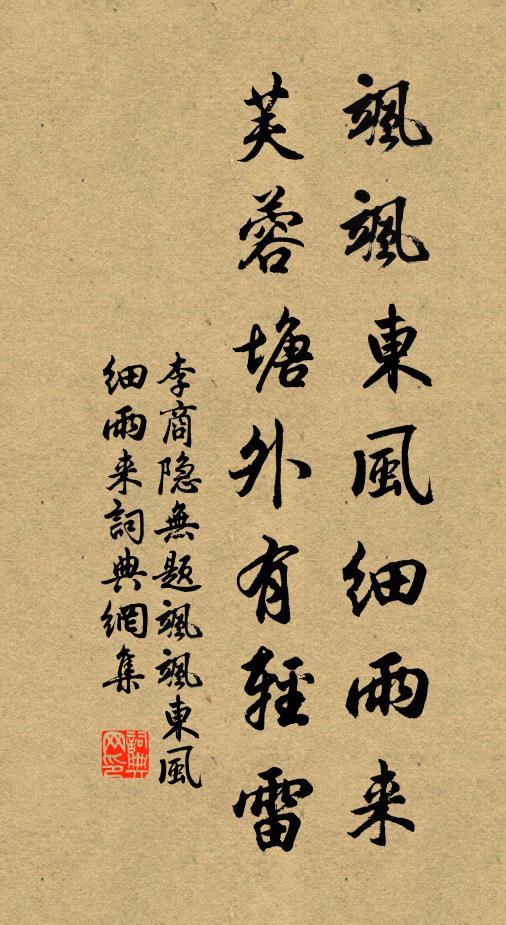 颯颯東風細雨来
芙蓉塘外有輕雷
李商隐無题颯颯東風
細雨来詞典網集
詞典
网印